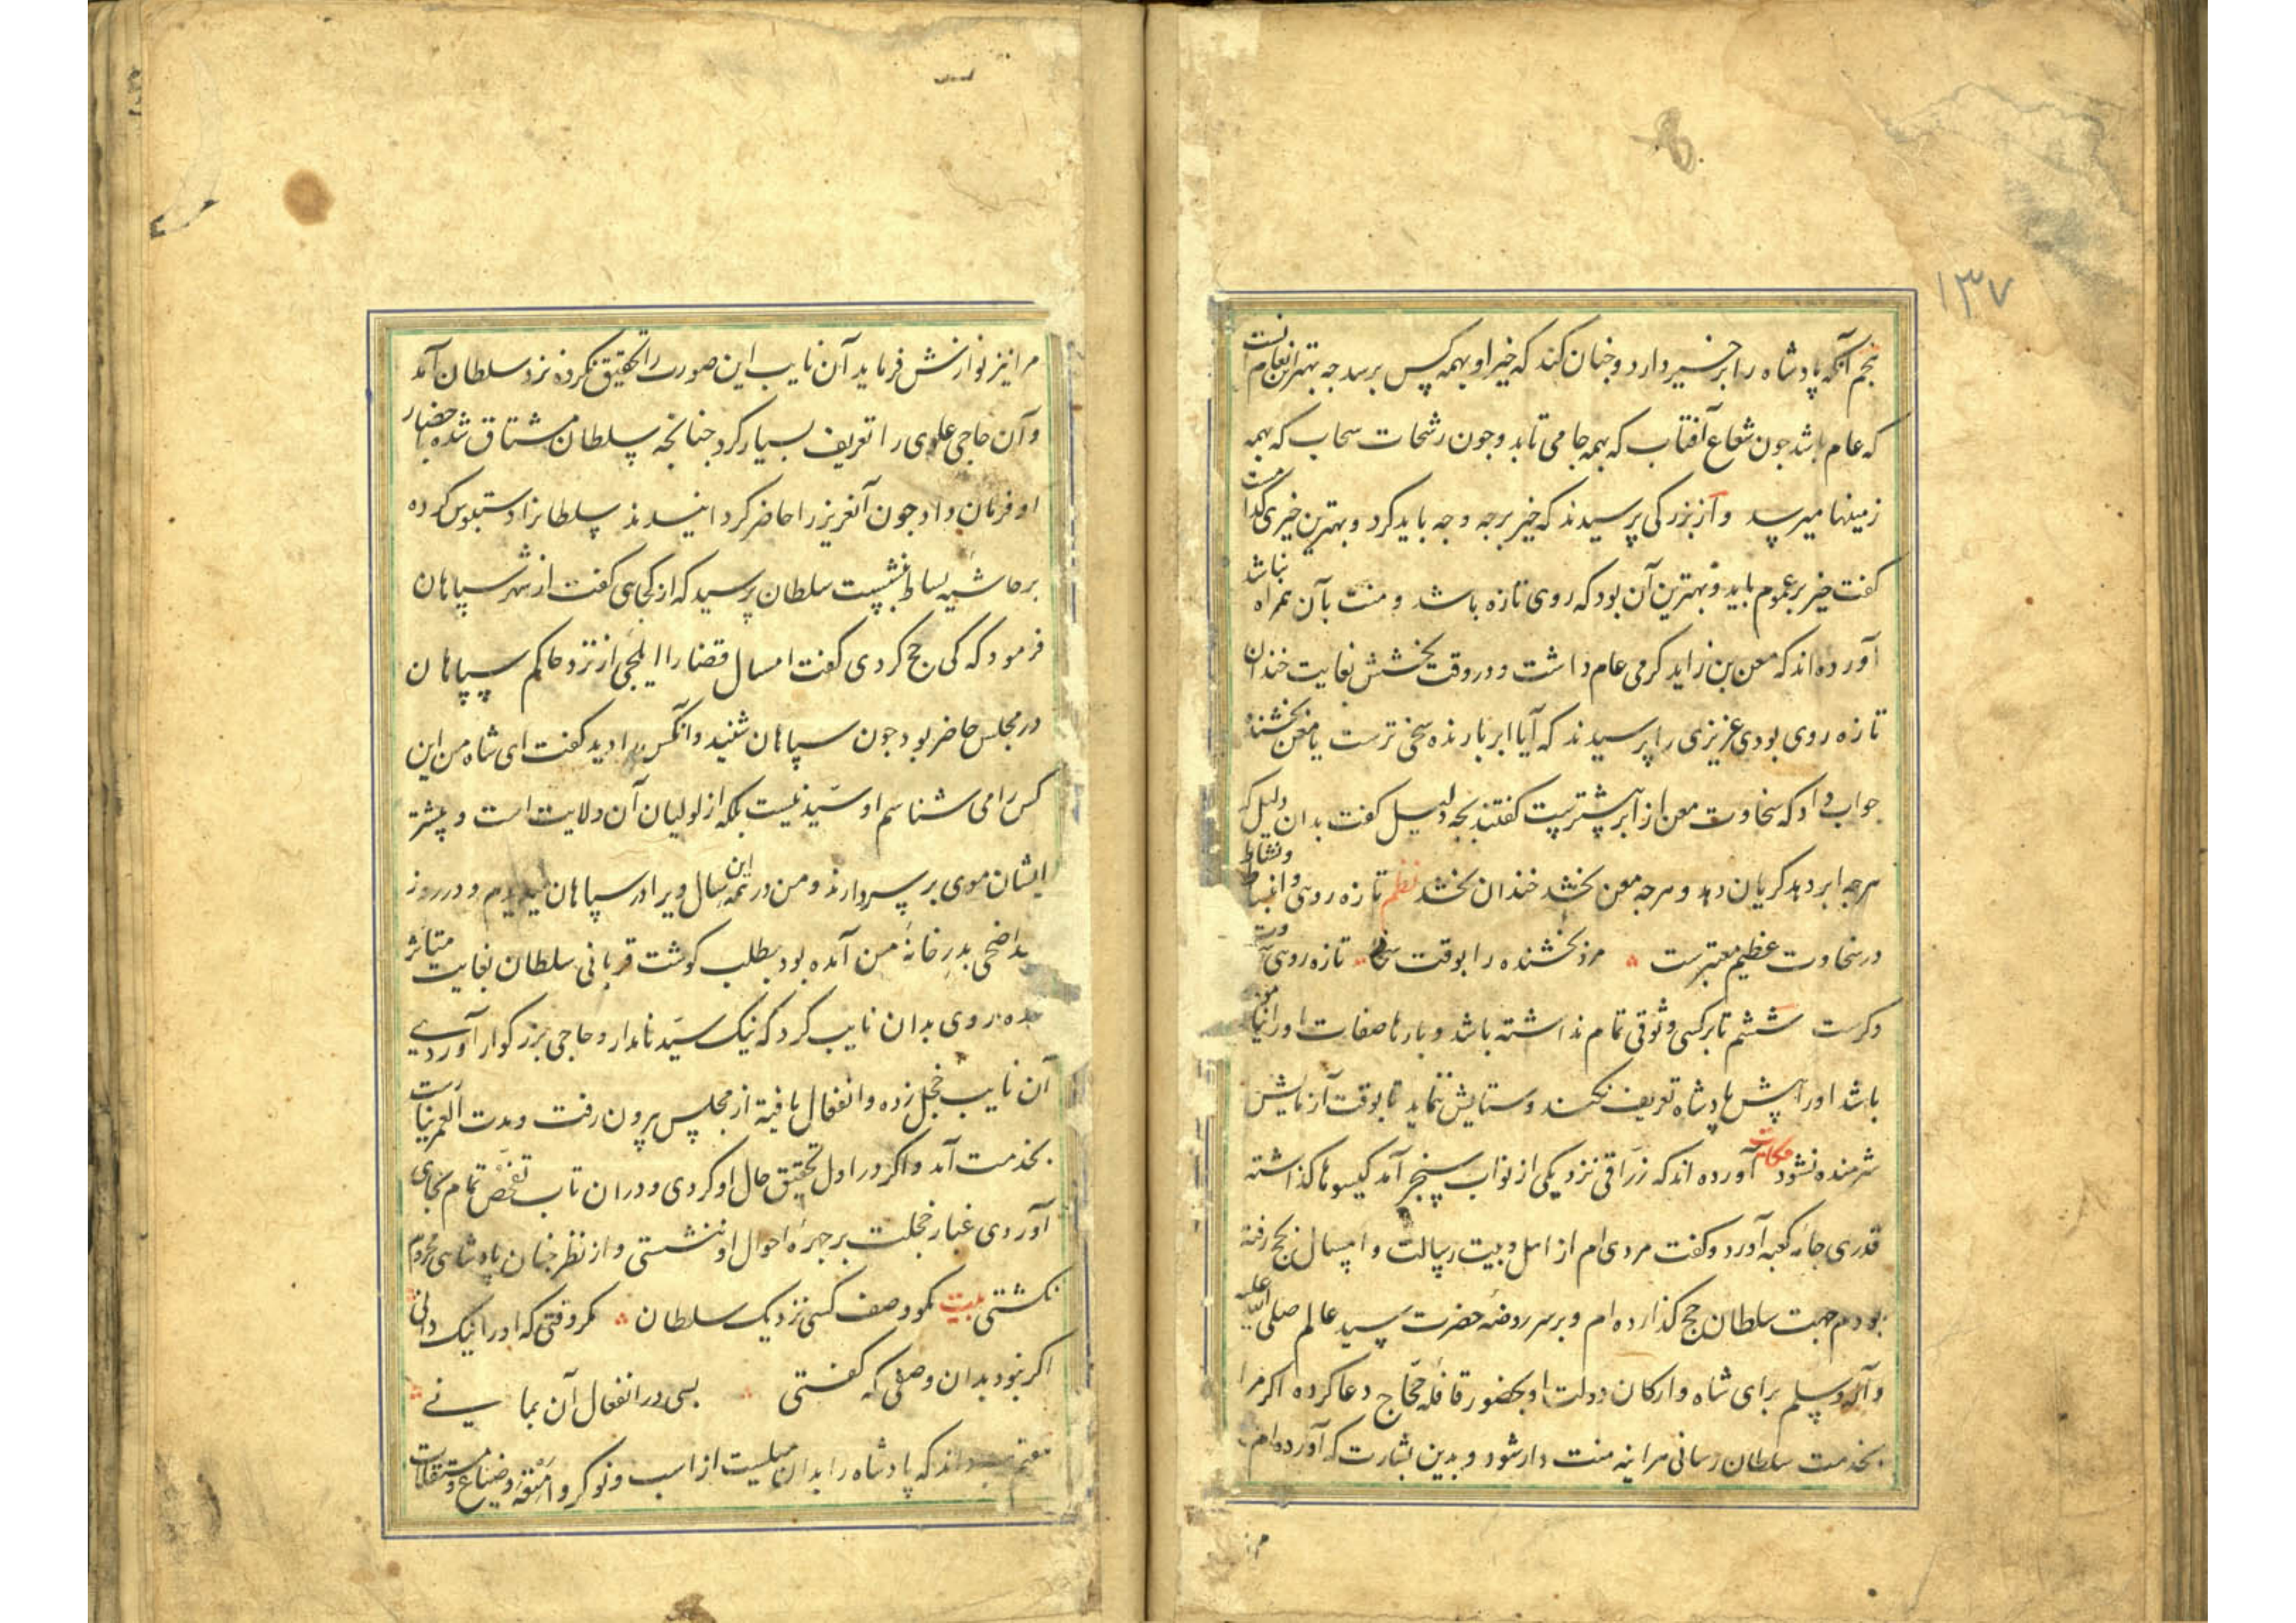 ۱۳۷
پنجم آنکه پادشاه را بر خیر دارد و جنان کند که خیر او بهمه کس برسد جه بهترین انعام آنست
که عام باشد جون شعاع آفتاب که بهمه جا می تابد و جون رشحات سحاب که بهمه
زمینها میرسد و از بزرکی پرسیدند که خیر بر جه وجه باید کرد و بهترین خیری کدامست
کفت خیر بر عموم باید و بهترین آن بود که روی تازه باشد و منت بآن همراه نباشد
آورده اند که معن بن زاید کرمی عام داشت و در وقت بخشش بغایت خندان
تازه روی بودی عزیزی را پرسیدند که آیا ابر بارنده سخی ترست یا معن بخشنده
جواب داد که سخاوت معن از ابر بیشترست کفتند بجه دلیل کفت بدان دلیل که
هرجه ابر دهد کریان دهد و هرجه معن بخشد خندان بخشد نظم تازه رویی و انبساط و نشاط
در سخاوت عظیم معتبرست مرد بخشنده را بوقت سخا تازه رویی
دکرست ششم تا بر کسی وثوقی تمام نداشته باشد و بارها صفات او را نیازموده
باشد او را پیش پادشاه تعریف نکند و ستایش ننماید تا بوقت آزمایش
شرمنده نشود حکایت آورده اند که زراقی نزد یکی از نواب سنجر آمد کیسوها کذاشته
قدری جامه کعبه آورد و کفت مردی ام از اهل و بیت رسالت و امسال بحج رفته
بودم جهت سلطان حج کذارده ام و بر سر روضه حضرت سید عالم صلی الله علیه
و آله وسلم برای شاه و ارکان دولت او بحضور قافله حجاج دعا کرده اکر مرا
بخدمت سلطان رسانی مراینه منت دار شود و بدین بشارت که آورده ام
مرا نیز نوازش فرماید آن نایب این صورت را تحقیق نکرده نزد سلطان آمد
و آن حاجی علوی را تعریف بسیار کرد جنانجه سلطان مشتاق شده باحضار
او فرمان داد جون آنعزیز را حاضر کردانیدند سلطانرا دستبوس کرده
بر حاشیه بساط بنشست سلطان پرسید که از کجایی کفت از شهر سپاهان
فرمود که کی حج کردی کفت امسال قضا را ایلچی از نزد حاکم سپاهان
در مجلس حاضر بود جون سپاهان شنید و آنکس را دید کفت ای شاه من این
کس را می شناسم او سید نیست بلکه از لولیان آن ولایت است و بیشتر
ایشان موی بر سر دارند و من در تمه این سال ویرا در سپاهان میدیدم و در روز
عید اضحی بدر خانه من آمده بود بطلب کوشت قربانی سلطان بغایت متاثر
شده روی بدان نایب کرد که نیک سید نامدار و حاجی بزرکوار آوردی
آن نایب خجل زده و انفعال یافته از مجلس بیرون رفت و مدت العمر نیارست
بخدمت آمد و اکر در اول تحقیق حال او کردی و در ان تاب تفحص تمام بجای
آوردی غبار خجلت بر جهره احوال او ننشستی و از نظر جنان پادشاهی محروم
نکشتی بیت مکو وصف کسی نزدیک سلطان مکر وقتی که او را نیک دانی
اکر نبود بدان وصفی که کفتی بسی در انفعال آن بمانی
هفتم پادشاه را بدان از اسب و نوکر و امتعه و ضیاع و مستغلات